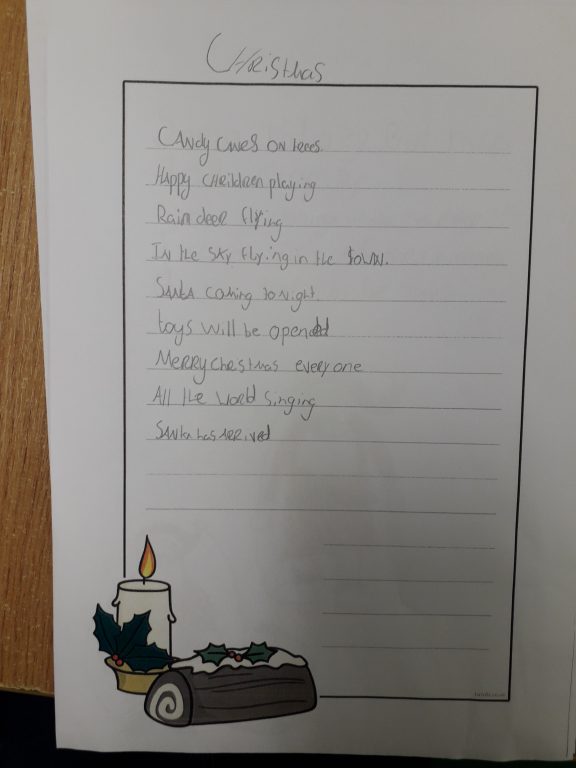 CHRistmas
CANdy CANES ON trees.
HAppy CHRildREN playing
Rain deer flying
IN the sky flying in the town.
SANtA coming to Night.
toys will be opened
MERRy chrstmas every one
All the world singing
SANta has ARRived